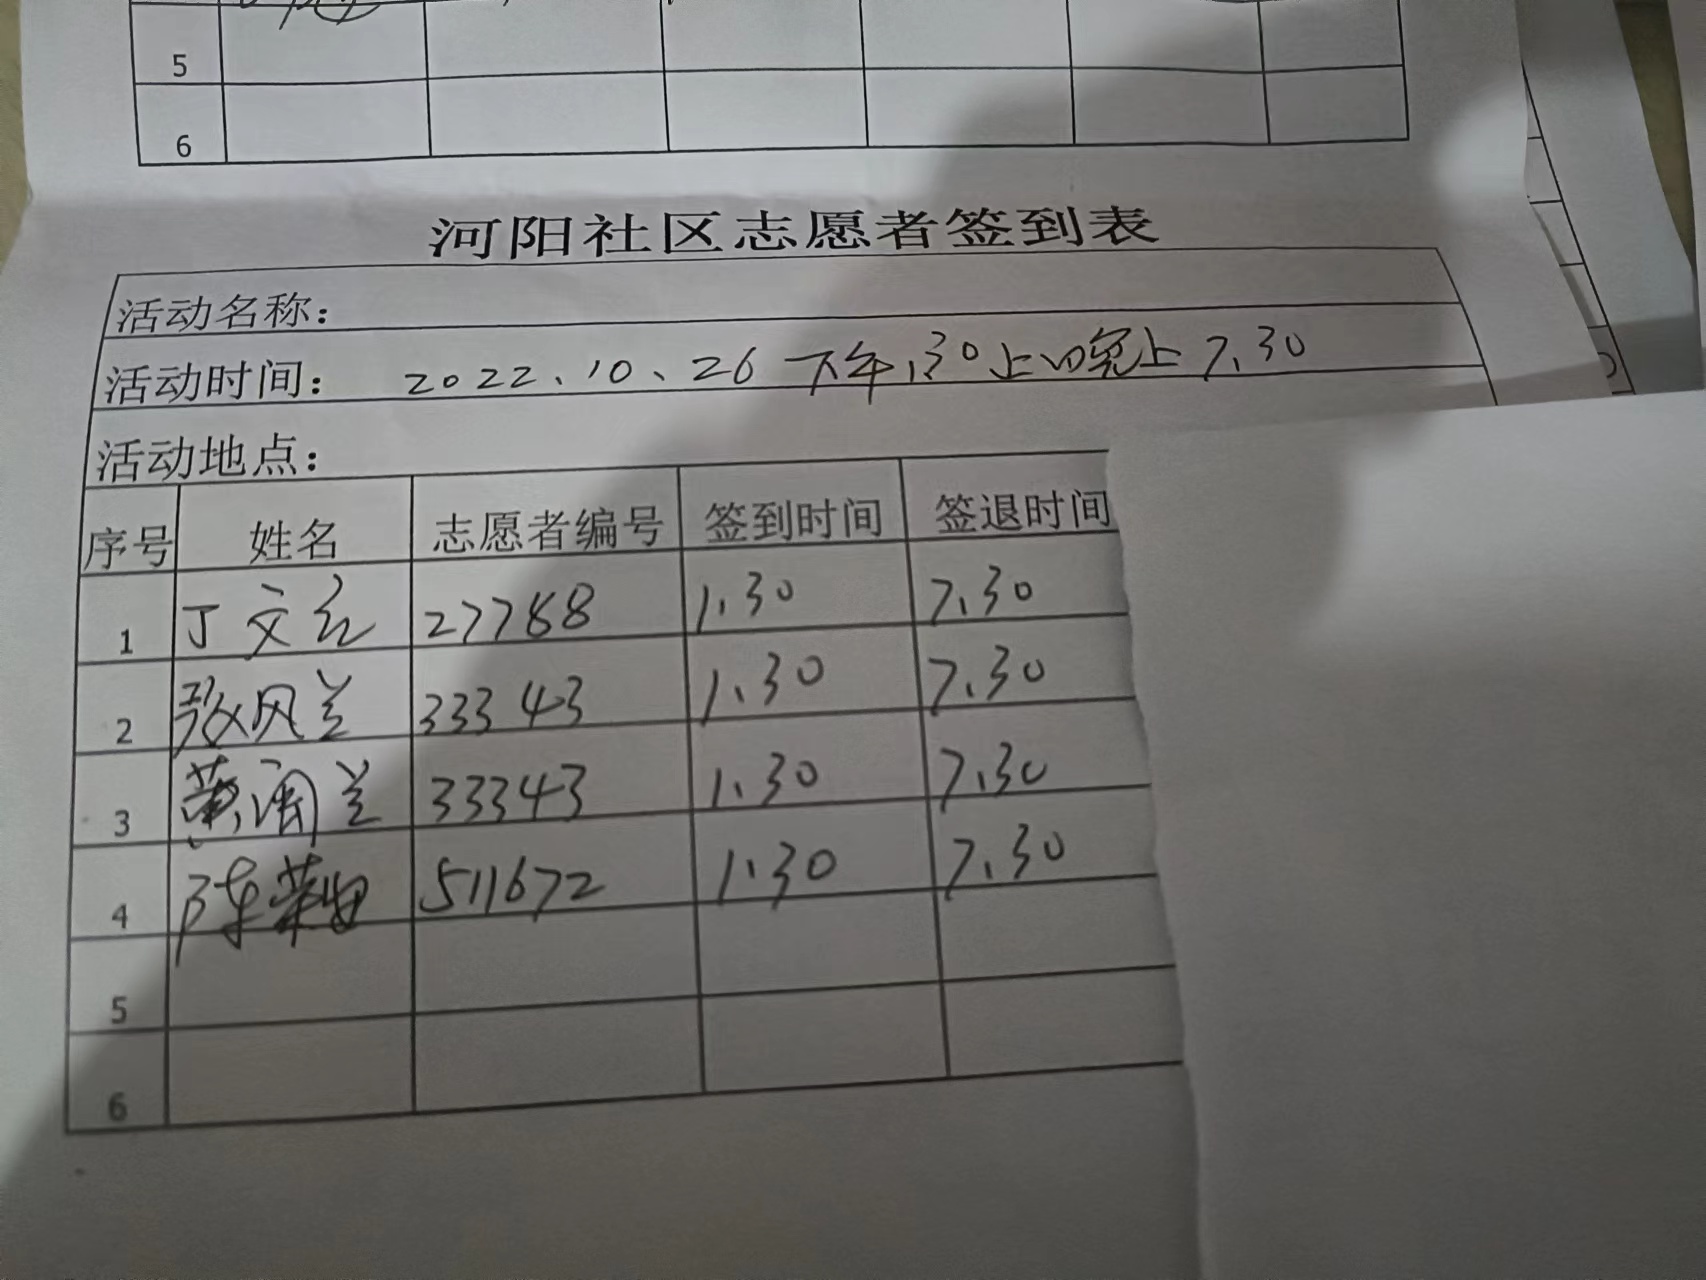 5
6
河阳社区志愿者签到表
活动名称：
活动时间： 2022、10、26 下午1,30 晚上7.30
活动地点：
序号 姓名 志愿者编号 签到时间 签退时间
1 丁文红 27788 1.30 7.30
2 张风兰 33343 1.30 7.30
3 黄润兰 33343 1.30 7.30
4 陈 511672 1.30 7.30
5
6